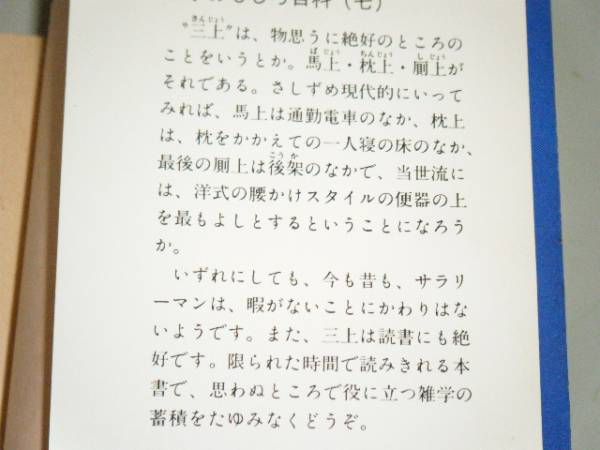 百科（七）
“三上”は、物思うに絶好のところの
ことをいうとか。馬上・枕上・厠上が
それである。さしずめ現代的にいって
みれば、馬上は通勤電車のなか、枕上
は、枕をかかえての一人寝の床のなか、
最後の厠上は後架のなかで、当世流に
は、洋式の腰かけスタイルの便器の上
を最もよしとするということになろう
か。
　いずれにしても、今も昔も、サラリ
ーマンは、暇がないことにかわりはな
いようです。また、三上は読書にも絶
好です。限られた時間で読みきれる本
書で、思わぬところで役に立つ雑学の
蓄積をたゆみなくどうぞ。